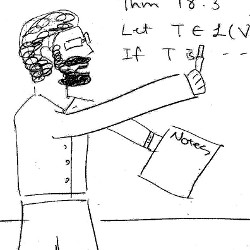 Thm 18.3
Let T ∈ L(V
If T is --
Notes